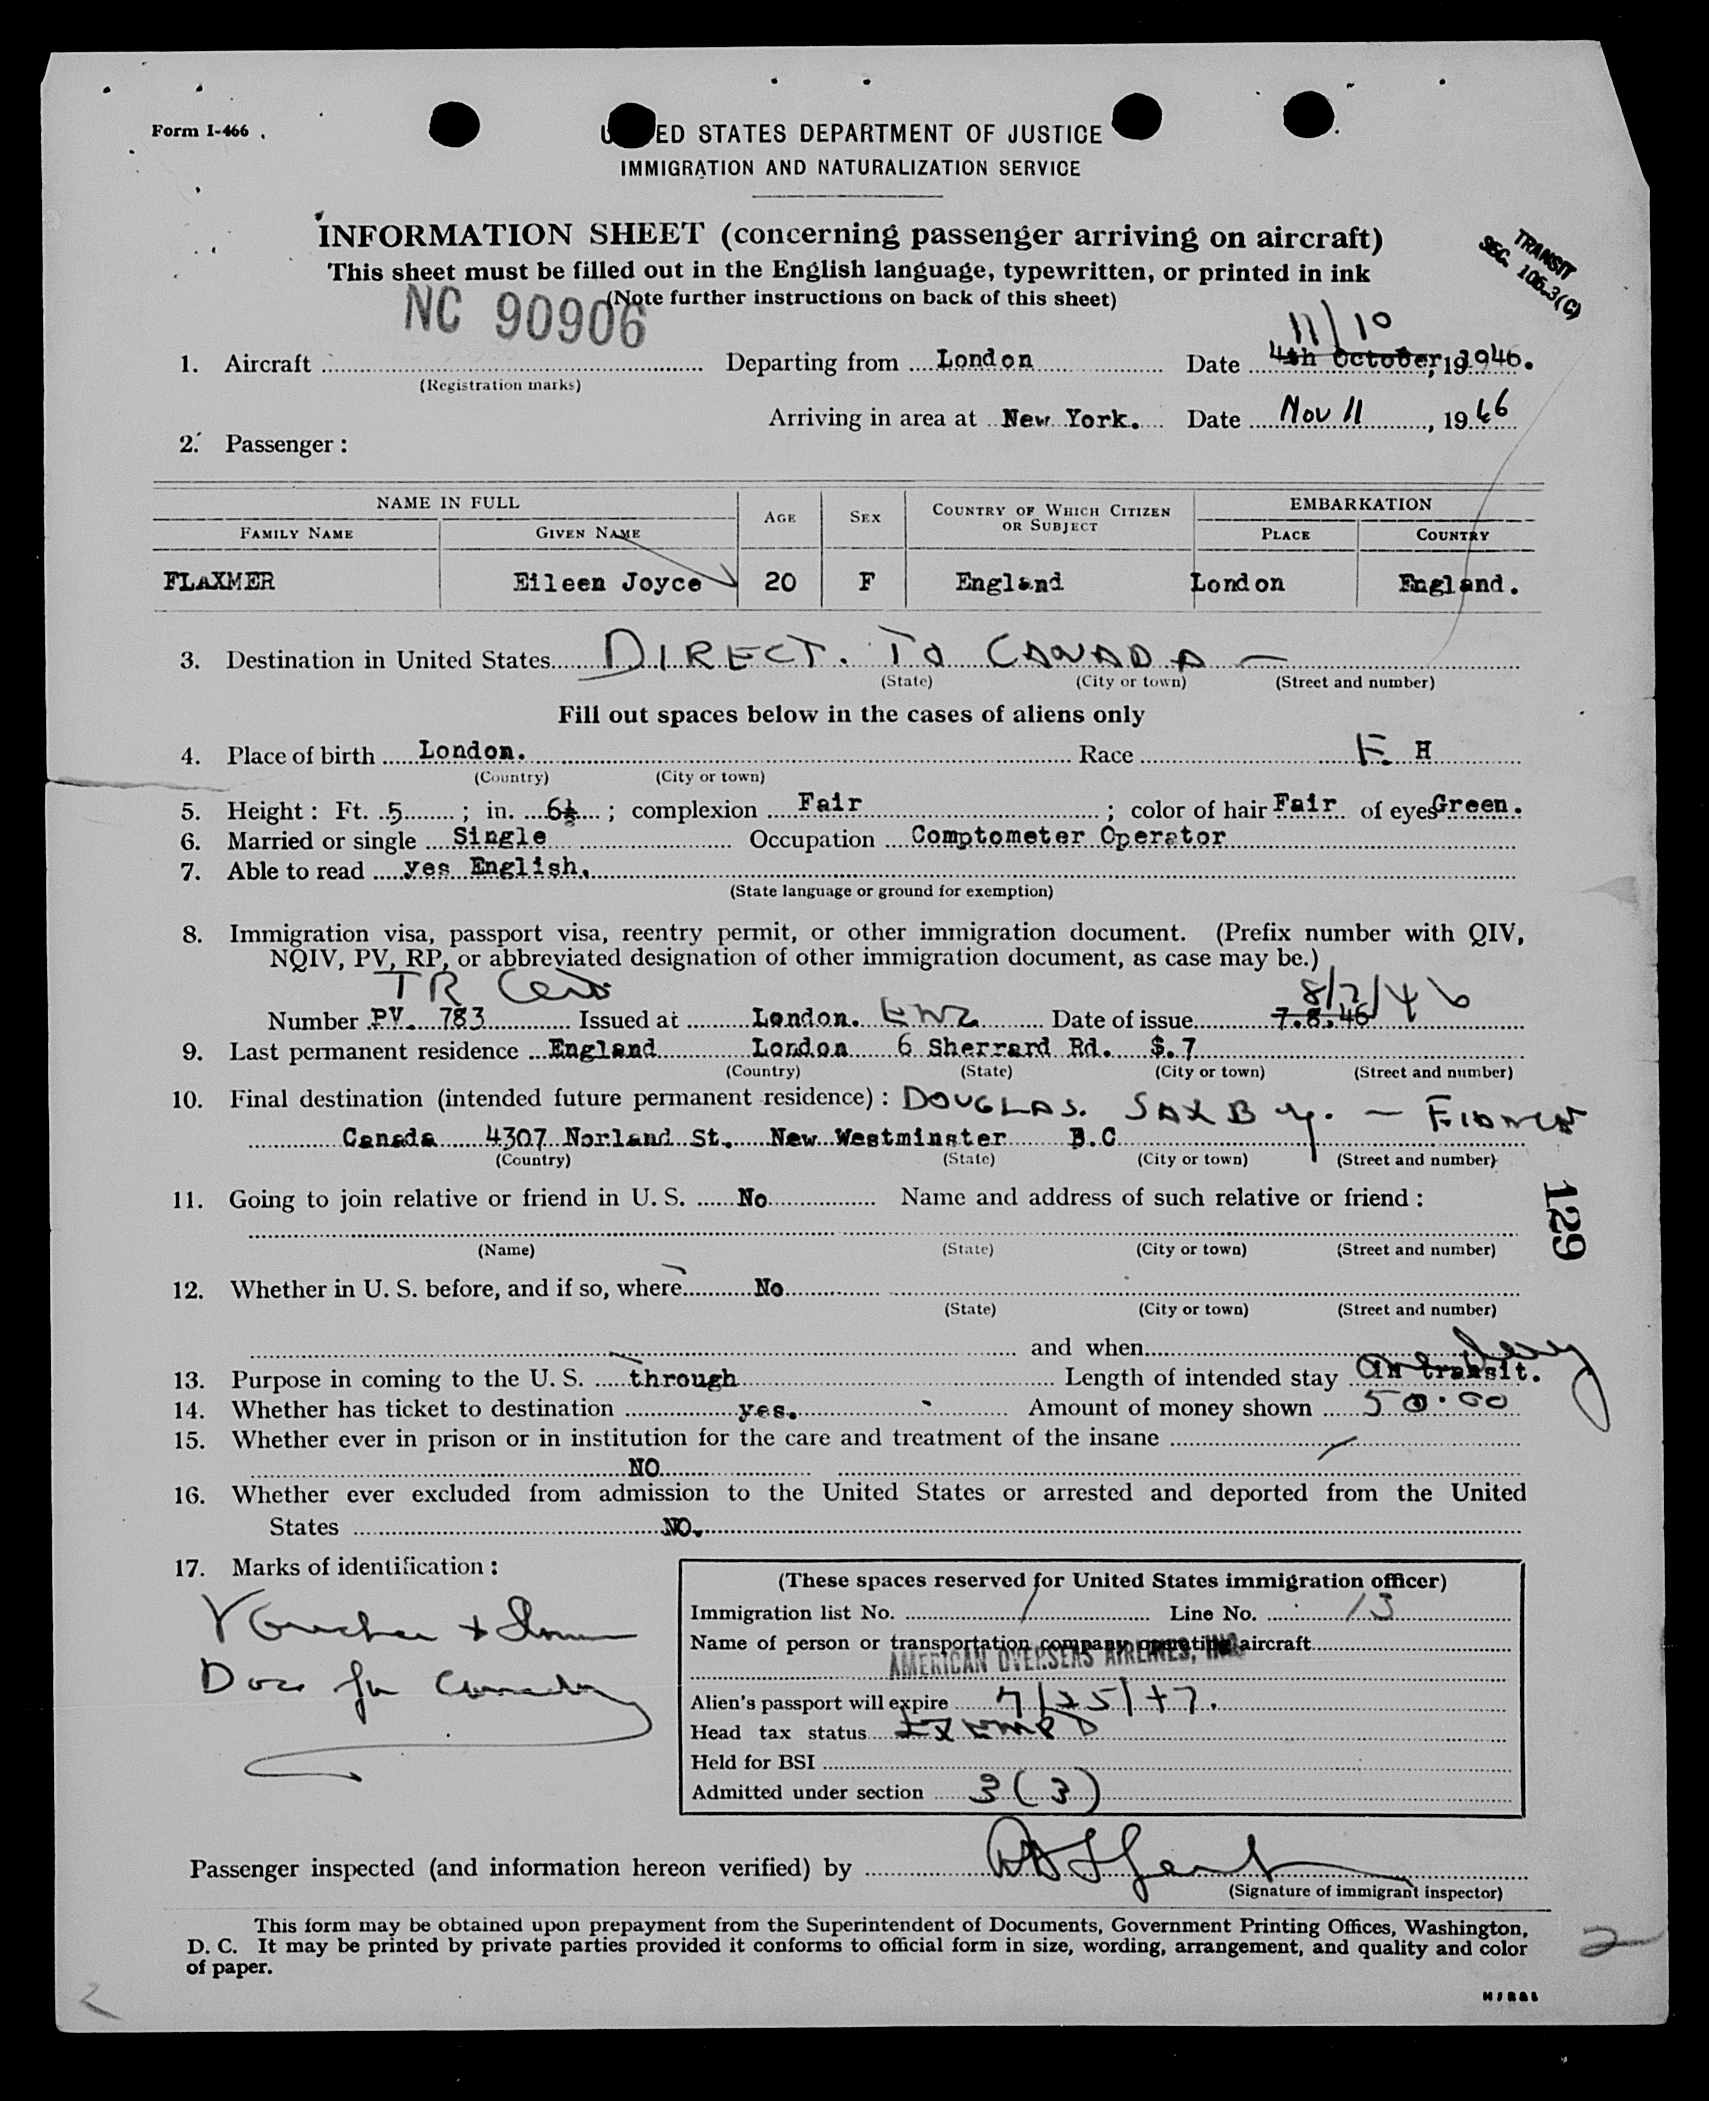 Form I-466
ED STATES DEPARTMENT OF JUSTICE
IMMIGRATION AND NATURALIZATION SERVICE
INFORMATION SHEET (concerning passenger arriving on aircraft)
TRANSIT
SEC. 106.3(C)
This sheet must be filled out in the English language, typewritten, or printed in ink
(Note further instructions on back of this sheet)
NC 90906
11/10
1. Aircraft Departing from London Date 4th October, 1946.
(Registration marks)
Arriving in area at New York. Date Nov 11, 1946
2. Passenger:
NAME IN FULL AGE SEX COUNTRY OF WHICH CITIZEN OR SUBJECT EMBARKATION
FAMILY NAME GIVEN NAME PLACE COUNTRY
FLAXMER Eileen Joyce 20 F England London England.
3. Destination in United States DIRECT. TO CANADA —
(State) (City or town) (Street and number)
Fill out spaces below in the cases of aliens only
4. Place of birth London. Race E H
(Country) (City or town)
5. Height: Ft. 5; in. 6½; complexion Fair; color of hair Fair of eyes Green.
6. Married or single Single Occupation Comptometer Operator
7. Able to read yes English.
(State language or ground for exemption)
8. Immigration visa, passport visa, reentry permit, or other immigration document. (Prefix number with QIV,
NQIV, PV, RP, or abbreviated designation of other immigration document, as case may be.)
TR 8/7/46
Number PV. 783 Issued at London. Date of issue 7.8.46
9. Last permanent residence England London 6 Sherrard Rd. $.7
(Country) (State) (City or town) (Street and number)
10. Final destination (intended future permanent residence): DOUGLAS. SAXBY. — FIANCE
Canada 4307 Norland St. New Westminster B.C
(Country) (State) (City or town) (Street and number)
129
11. Going to join relative or friend in U. S. No Name and address of such relative or friend:
(Name) (State) (City or town) (Street and number)
12. Whether in U. S. before, and if so, where No
(State) (City or town) (Street and number)
and when
13. Purpose in coming to the U. S. through Length of intended stay transit.
14. Whether has ticket to destination yes. Amount of money shown 50.00
15. Whether ever in prison or in institution for the care and treatment of the insane
NO
16. Whether ever excluded from admission to the United States or arrested and deported from the United
States NO.
17. Marks of identification:
Voucher + 
Docs for Canada
(These spaces reserved for United States immigration officer)
Immigration list No. 1 Line No. 13
Name of person or transportation company operating aircraft
AMERICAN OVERSEAS AIRLINES, INC.
Alien's passport will expire 7/25/47.
Head tax status EXEMPT
Held for BSI
Admitted under section 3(3)
Passenger inspected (and information hereon verified) by
(Signature of immigrant inspector)
This form may be obtained upon prepayment from the Superintendent of Documents, Government Printing Offices, Washington,
D. C. It may be printed by private parties provided it conforms to official form in size, wording, arrangement, and quality and color
of paper.
2
2